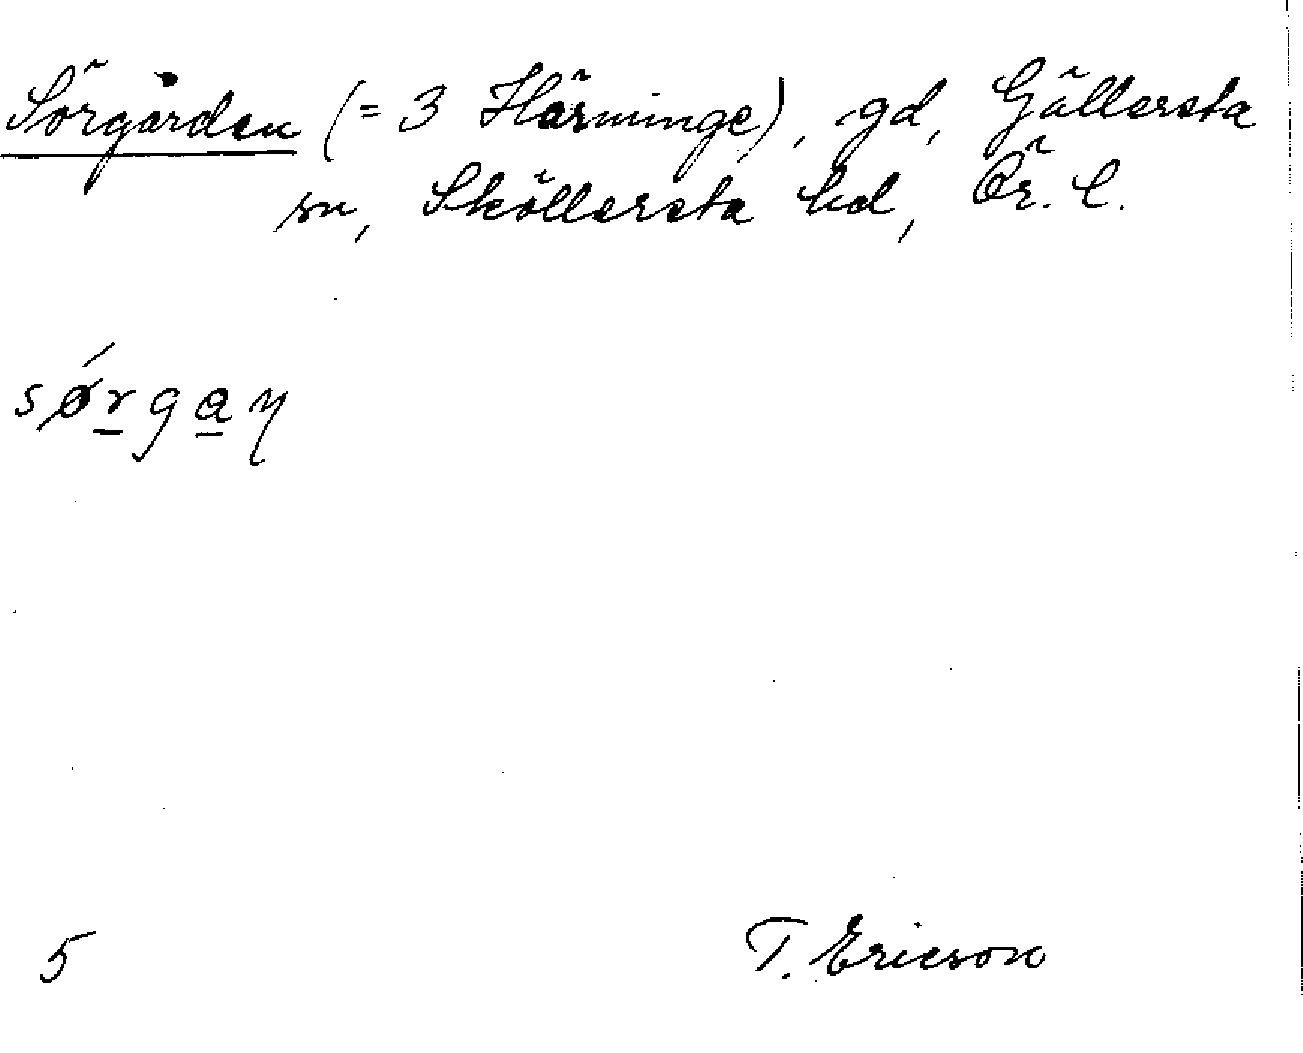 Sörgården (= 3 Härminge), gd, Gällersta
sn, Sköllersta hd, Ör. l.
sǿrgaɳ
5
T. Ericson